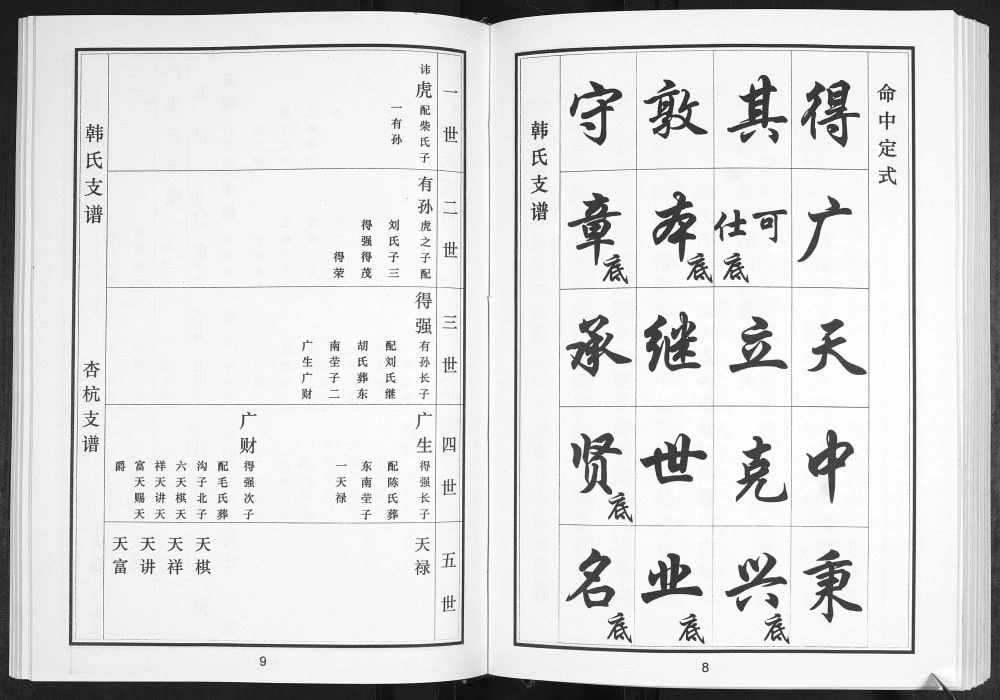 命中定式
得广天中秉
其可仕底立克兴底
敦本底继世业底
守章底承贤底名底
韩氏支谱
8
一世
讳虎配柴氏子
一有孙
二世
有孙虎之子配
刘氏子三
得强得茂
得荣
三世
得强有孙长子
配刘氏继
胡氏葬东
南茔子二
广生广财
四世
广生得强长子
配陈氏葬
东南茔子
一天禄
广财得强次子
配毛氏葬
沟子北子
六天棋天
祥天讲天
富天赐天
爵
五世
天禄
天棋
天祥
天讲
天富
韩氏支谱
杏杭支谱
9